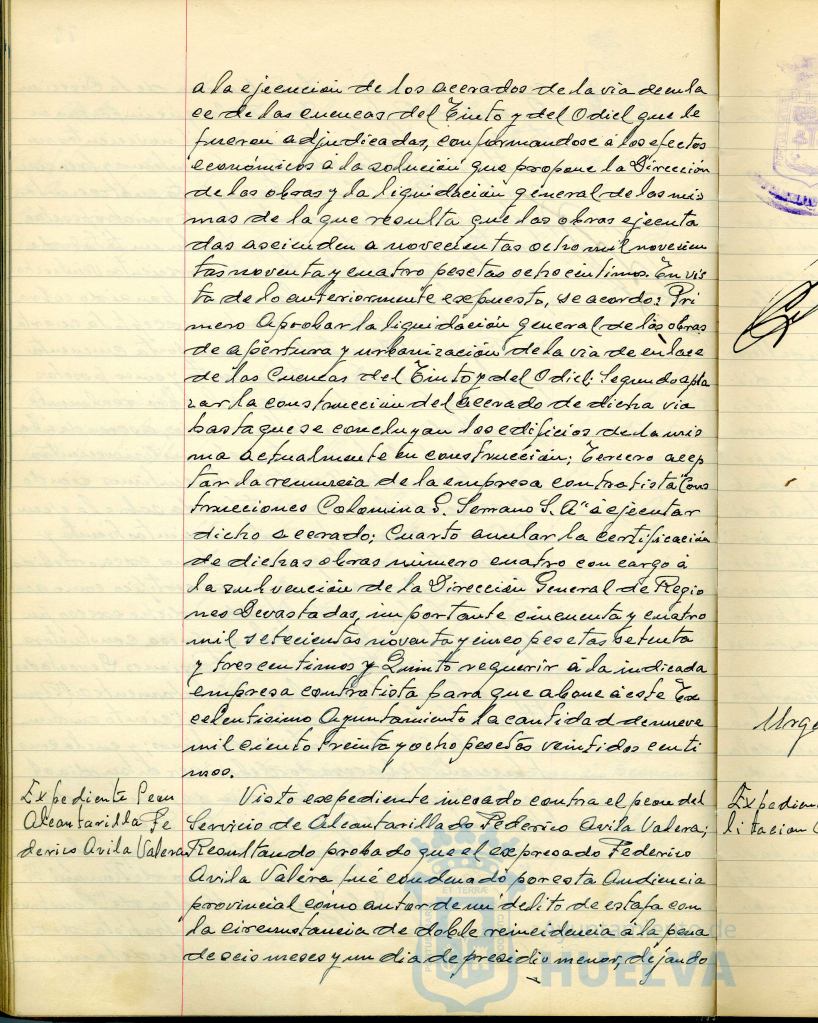 a la ejecución de los acerados de la via de enla
ce de las cuencas del Tinto y del Odiel que le
fueron adjudicadas, conformandose á los efectos
económicos á la solución que propone la Dirección
de las obras y la liquidación general de las mis
mas de la que resulta que las obras ejecuta
das ascienden a novecientas ocho mil novecien
tas noventa y cuatro pesetas ocho centimos. En vis
ta de lo anteriormente expuesto, se acordo: Pri
mero Aprobar la liquidación general de las obras
de apertura y urbanización de la via de enlace
de las Cuencas del Tinto y del Odiel; Segundo apla
zar la construcción del acerado de dicha via
hasta que se concluyan los edificios de la mis
ma actualmente en construcción; Tercero acep
tar la renuncia de la empresa contratista "Cons
trucciones Colomina G. Serrano S. A" á ejecutar
dicho acerado; Cuarto anular la certificación
de dichas obras número cuatro con cargo á
la subvención de la Dirección General de Regio
nes Devastadas, importante cincuenta y cuatro
mil setecientas noventa y cinco pesetas setenta
y tres centimos y Quinto requerir á la indicada
empresa contratista para que abone á este Ex
celentisimo Ayuntamiento la cantidad de nueve
mil ciento treinta y ocho pesetas veintidos centi
mos.
Expediente Peon
Alcantarilla Fe
derico Avila Valera
Visto expediente incoado contra el peon del
Servicio de Alcantarillado Federico Avila Valera;
Resultando probado que el expresado Federico
Avila Valera fué condenado por esta Audiencia
provincial como autor de un delito de estafa con
la circunstancia de doble reincidencia á la pena
de seis meses y un dia de presidio menor, dejando
Urge
Expedien
litacion
Ayuntamiento de
HUELVA